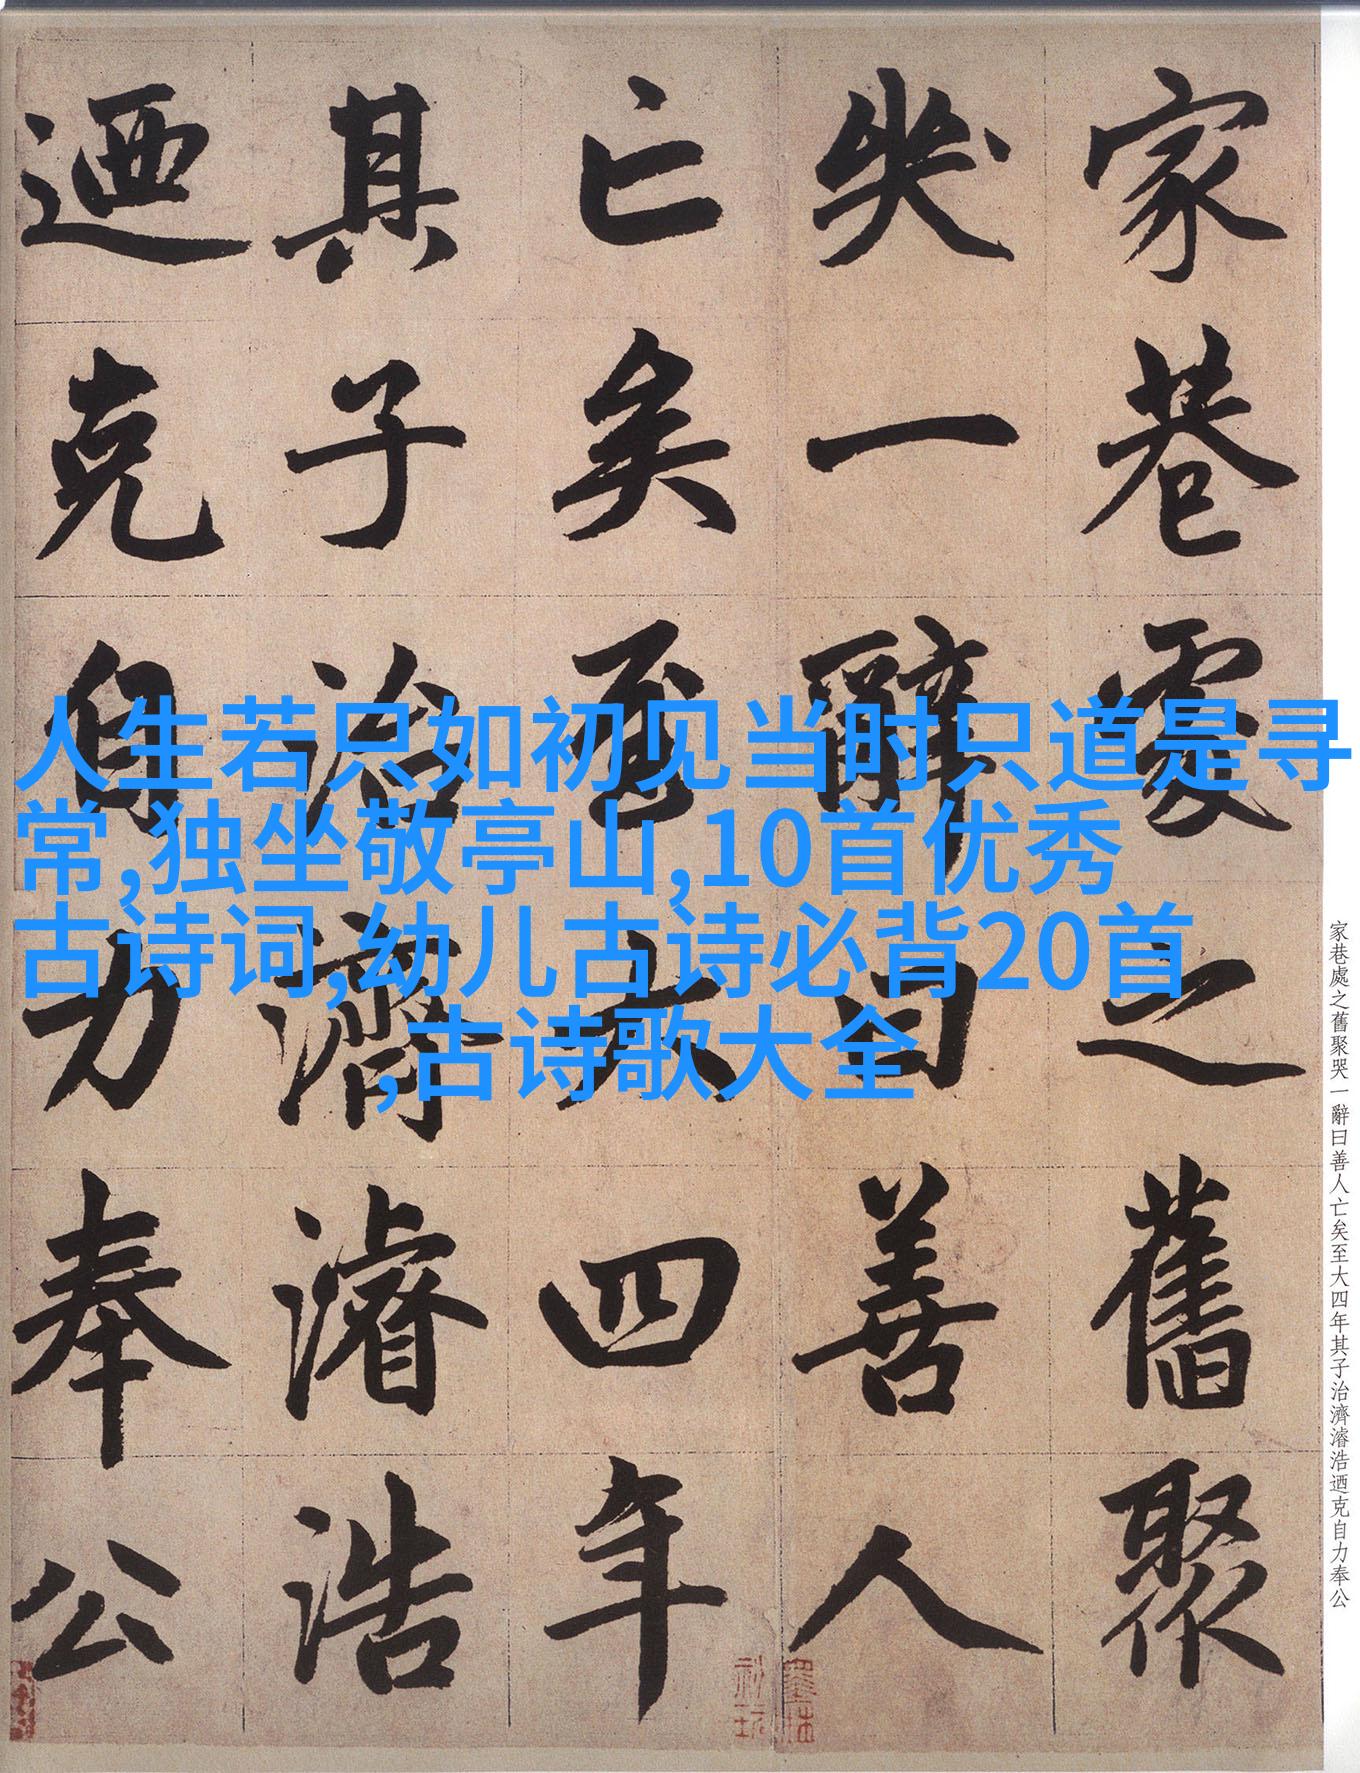 家巷處之舊聚
哭一辭曰善人
亡矣至大四年
其子治濟濬浩
迺克自力奉公
人生若只如初见当时只道是寻
常,独坐敬亭山,10首优秀
古诗词,幼儿古诗必背20首
,古诗歌大全
家巷處之舊聚哭一辭曰善人亡矣至大四年其子治濟濬浩迺克自力奉公